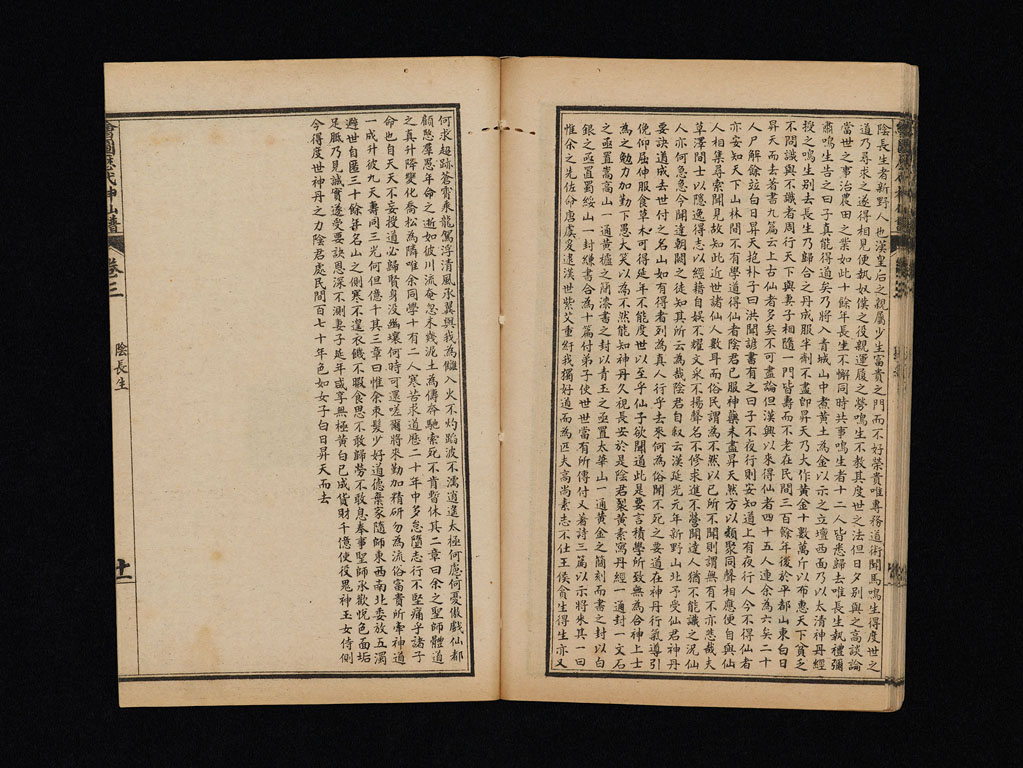 陰長生者新野人也漢皇后之親屬少生富貴之門而不好榮貴唯專務道術聞馬鳴生得度世之
道乃尋求之遂得相見便執奴僕之役親運履之勞鳴生不教其度世之法但日夕別與之高談論
當世之事治農田之業如此十餘年長生不懈同時共事鳴生者十二人皆悉歸去唯長生執禮彌
肅鳴生告之曰子真能得道矣乃將入青城山中煮黃土為金以示之立壇西面乃以太清神丹經
授之鳴生別去長生乃歸合之丹成服半劑不盡即昇天乃大作黃金十數萬斤以布惠天下貧乏
不問識與不識者周行天下與妻子相隨一門皆壽而不老在民間三百餘年後於平都山東白日
昇天而去著書九篇云上古仙者多矣不可盡論但漢興以來得仙者四十五人連余為六矣二十
人尸解餘竝白日昇天抱朴子曰洪聞諺書有之曰子不夜行則安知道上有夜行人今不得仙者
亦安知天下山林間不有學道得仙者陰君已服神藥未盡昇天然方以類聚同聲相應便自與仙
人相集尋索聞見故知此近世諸仙人數耳而俗民謂為不然以己所不聞則謂無有不亦悲哉夫
草澤間士以隱逸得志以經籍自娛不耀文采不揚聲名不修求進不營聞達人猶不能識之況仙
人亦何急急今聞達朝闕之徒知其所云為哉陰君自敘云漢延光元年新野山北予受仙君神丹
要訣道成去世付之名山如有得者列為真人行乎去來何為俗聞不死之要道在神丹行氣導引
俛仰屈伸服食草木可得延年不能度世以至乎仙子欲聞道此是要言積學所致無為合神上士
為之勉力加勤下愚大笑以為不然能知神丹久視長安於是陰君裂黃素寫丹經一通封一文石
之函置嵩高山一通黃櫨之簡漆書之封以青玉之函置太華山一通黃金之簡刻而書之封以白
銀之函置蜀綏山一封縑書合為十篇付弟子使世世當有所傳付又著詩三篇以示將來其一曰
惟余之先佐命唐虞爰逮漢世紫艾重紆我獨好道而為匹夫高尚素志不仕王侯貪生得生亦又
何求超跡蒼霄乘龍駕浮清風承翼與我為讎入火不灼蹈波不濡逍遙太極何慮何憂傲戲仙都
顧愍群愚年命之逝如彼川流奄忽未幾泥土為儔奔馳索死不肯暫休其二章曰余之聖師體道
之真升降變化喬松為隣唯余同學十有二人寒苦求道歷二十年中多怠墮志行不堅痛乎諸子
命也自天天不妄授道必歸賢身沒幽壤何時可還嗟爾將來勤加精研勿為流俗富貴所牽神道
一成升彼九天壽同三光何但億千其三章曰惟余束髮少好道德棄家隨師東西南北委放五濁
避世自匿三十餘年名山之側寒不遑衣饑不暇食思不敢歸勞不敢息奉事聖師承歡悅色面垢
足胝乃見誠實遂受要訣恩深不測妻子延年咸享無極黃白已成貨財千億使役鬼神玉女侍側
今得度世神丹之力陰君處民間百七十年色如女子白日昇天而去
會圖歷代神仙譜
卷三
陰長生
十一